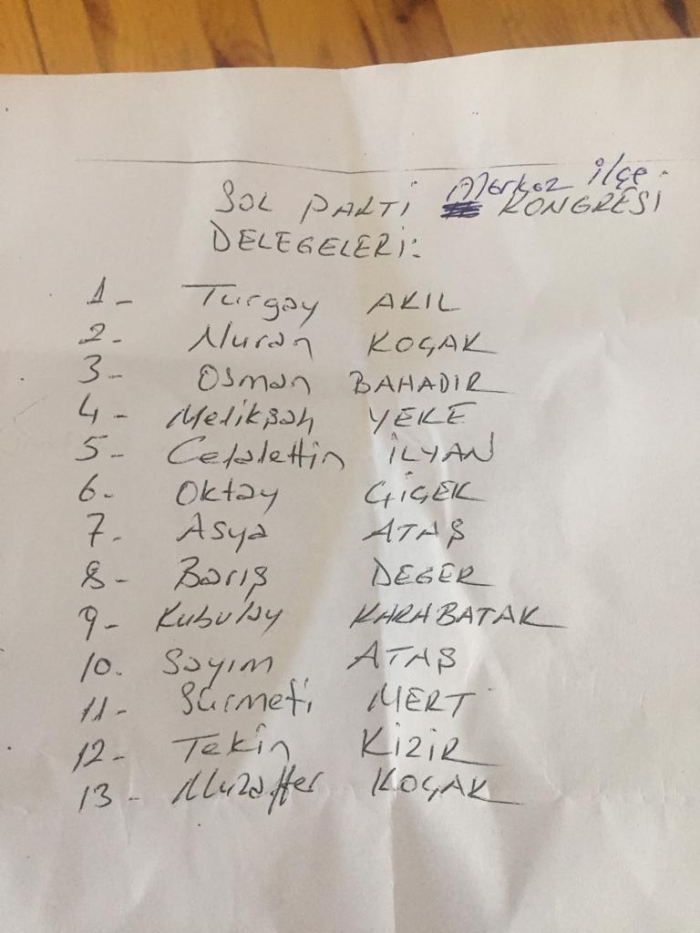 SOL PARTİ Merkez ilçe KONGRESİ
DELEGELERİ:
1- Turgay AKIL
2- Nuran KOÇAK
3- Osman BAHADIR
4- Melikşah YEKE
5- Celalettin İLYAN
6- Oktay ÇİÇEK
7- Asya ATAŞ
8- Barış DEGER
9- Kubulay KARABATAK
10. Sayım ATAŞ
11- Sürmeli MERT
12- Tekin KİZİR
13- Muzaffer KOÇAK